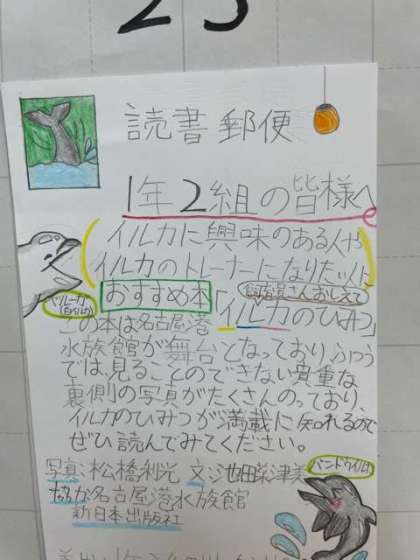 23
読書郵便
1年2組の皆様へ
イルカに興味のある人や
イルカのトレーナーになりたい人に
おすすめ本
飼育員さんおしえて
「イルカのひみつ」
ベルーガ
(白イルカ)
この本は名古屋港
水族館が舞台となっており、ふつう
では、見ることのできない貴重な
裏側の写真がたくさんのっており、
イルカのひみつが満載に知れるので
ぜひ読んでみてください。
写真:松橋利光 文:池田菜津美
バンドウイルカ
協力 名古屋港水族館
新日本出版社